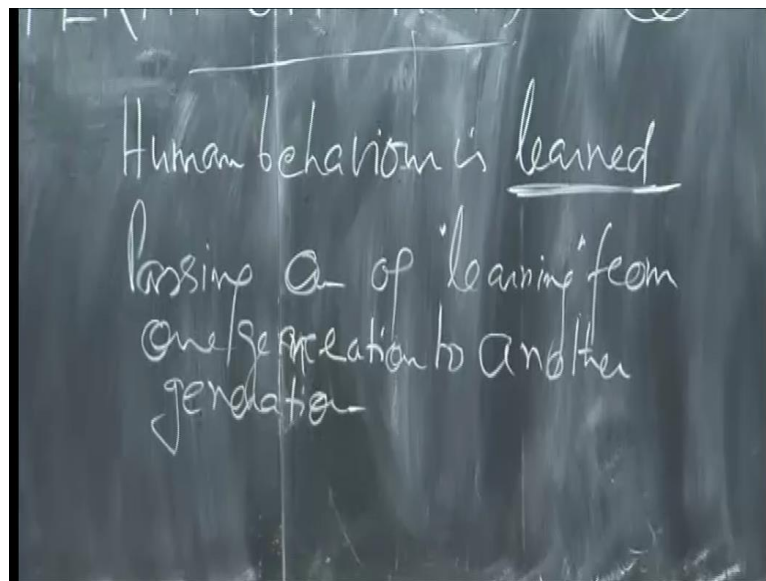 Human behaviour is learned
Passing on of "learning" from
one generation to another
generation